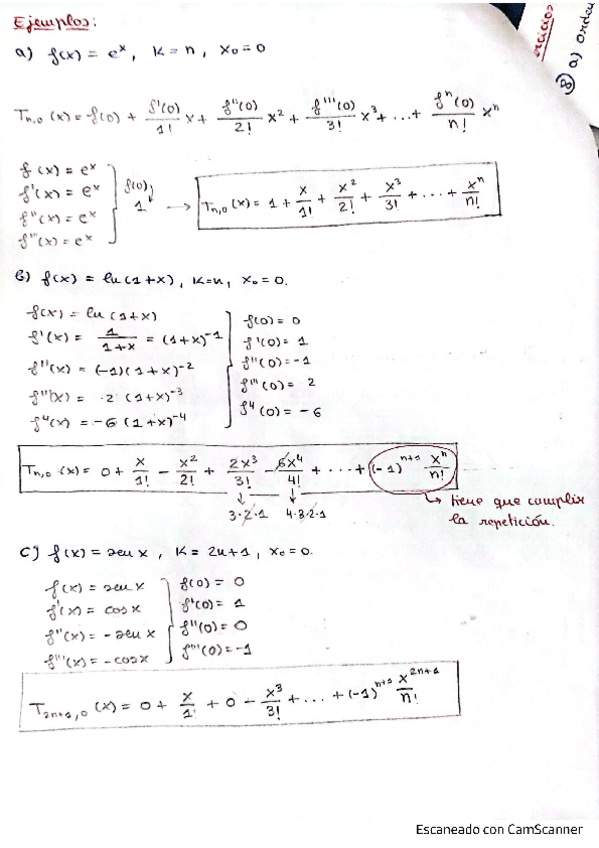 Ejemplos:
a) f(x) = eˣ, K = n, x₀ = 0
Tn,0 (x) = f(0) + f'(0)/1! x + f''(0)/2! x² + f'''(0)/3! x³ + ... + fⁿ(0)/n! xⁿ
f(x) = eˣ
f'(x) = eˣ
f''(x) = eˣ
f'''(x) = eˣ
f(0)
1 → Tn,0 (x) = 1 + x/1! + x²/2! + x³/3! + ... + xⁿ/n!
b) f(x) = ln(1+x), K=n, x₀ = 0.
f(x) = ln(1+x) f(0) = 0
f'(x) = 1/(1+x) = (1+x)⁻¹ f'(0) = 1
f''(x) = (-1)(1+x)⁻² f''(0) = -1
f'''(x) = 2 (1+x)⁻³ f'''(0) = 2
f⁴(x) = -6 (1+x)⁻⁴ f⁴(0) = -6
Tn,0 (x) = 0 + x/1! - x²/2! + 2x³/3! - 6x⁴/4! + ... + (-1)ⁿ⁺¹ xⁿ/n!
3·2·1 4·3·2·1
tiene que cumplir
la repetición.
c) f(x) = sen x, K = 2n+1, x₀ = 0.
f(x) = sen x f(0) = 0
f'(x) = cos x f'(0) = 1
f''(x) = - sen x f''(0) = 0
f'''(x) = - cos x f'''(0) = -1
T2n+1,0 (x) = 0 + x/1! + 0 - x³/3! + ... + (-1)ⁿ⁺¹ x²ⁿ⁺¹/n!
ercicios
8 a) orden
Escaneado con CamScanner